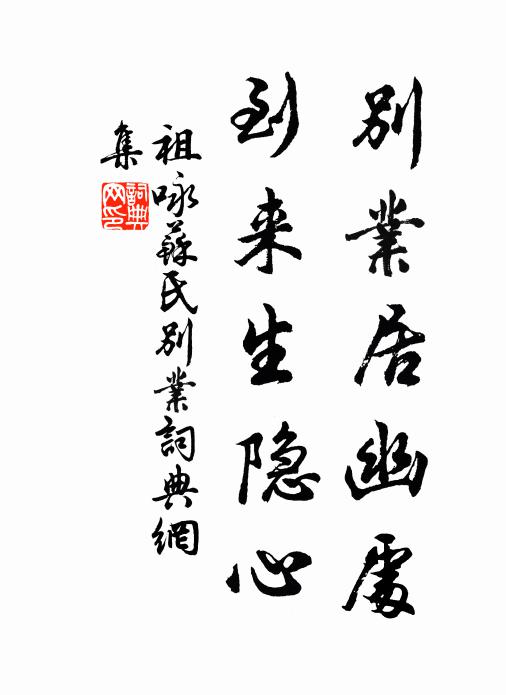 別業居幽處
到来生隐心
祖咏蘇氏别業詞典網
集
詞典网印